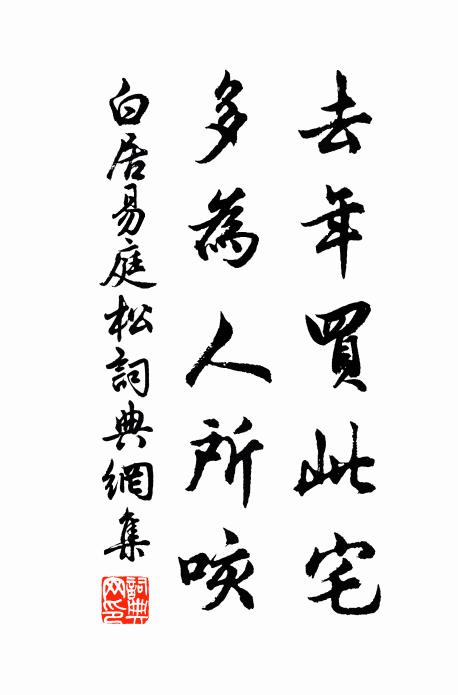 去年買此宅
多為人所咳
白居易庭松詞典網集
詞典網印